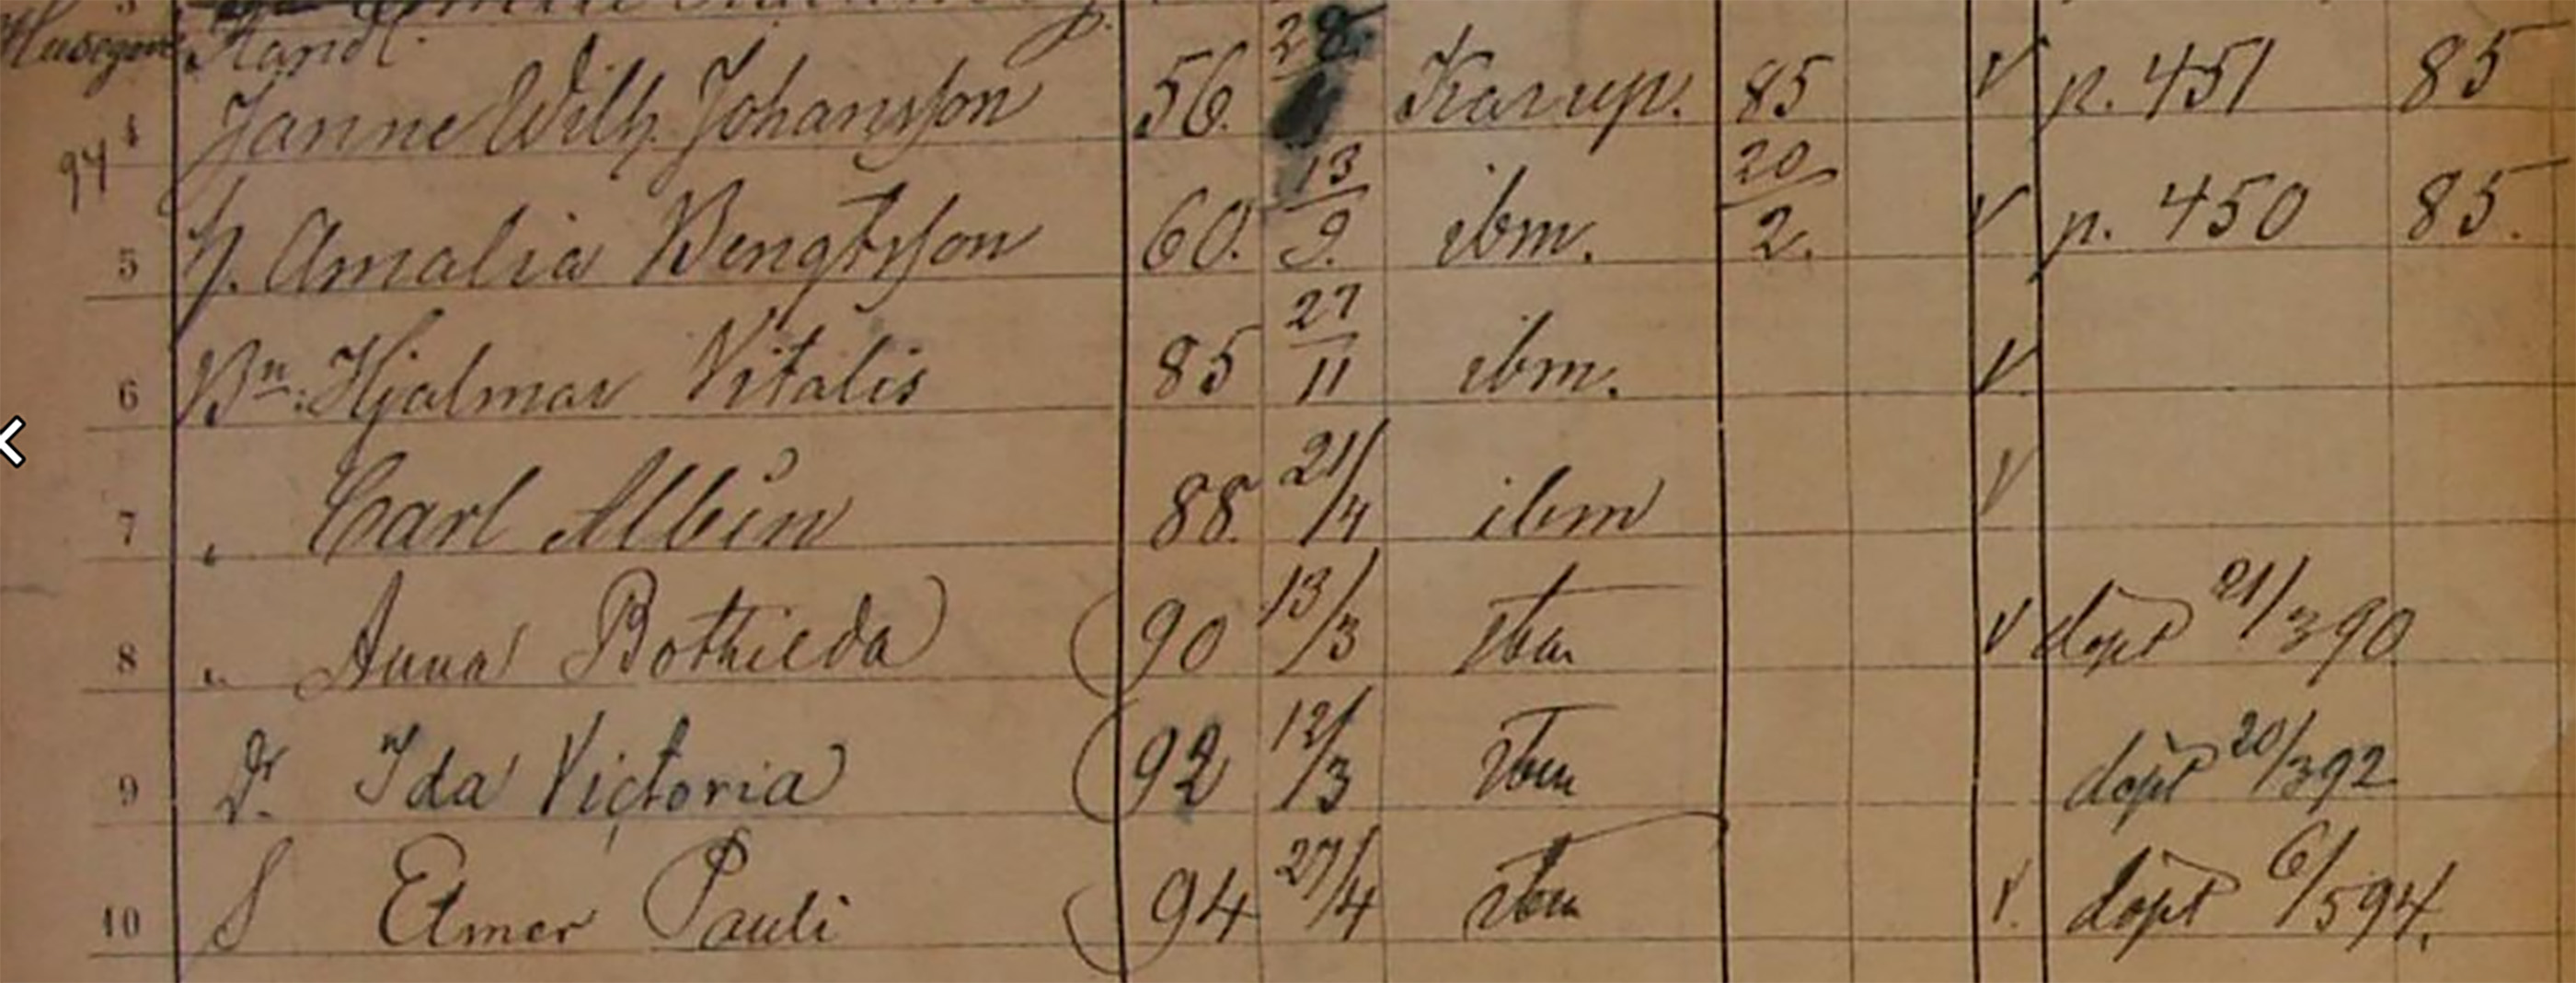 Handl.
4 Janne Wilh. Johansson 56. 28 Karup. 85 V p. 451 85
94
5 H. Amalia Bengtsson 60. 13/9. ibm. 20/2. V p. 450 85.
6 Bn: Hjalmar Vitalis 85 27/11 ibm. V
7 " Carl Albin 88. 21/4 ibm V
8 " Anna Bothilda 90 13/3 ibm V döpt 21/3 90
9 Dr Ida Victoria 92 12/3 ibm döpt 20/3 92
10 S Elmer Pauli 94 27/4 ibm V. döpt 6/5 94.